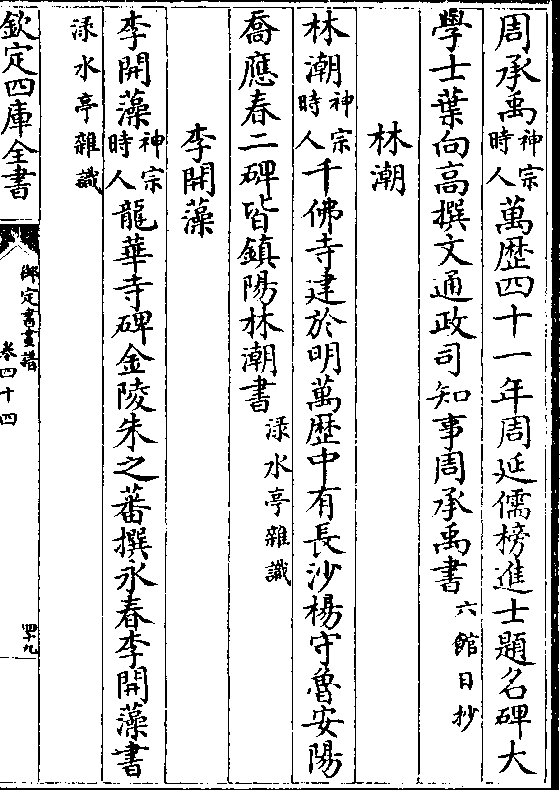 周承禹神宗時人萬歴四十一年周延儒榜進士題名碑大
學士葉向高撰文通政司知事周承禹書六館日抄
林潮
林潮神宗時人千佛寺建於明萬歴中有長沙楊守魯安陽
喬應春二碑皆鎮陽林潮書渌水亭雜識
李開藻
李開藻神宗時人龍華寺碑金陵朱之蕃撰永春李開藻書
渌水亭雜識
欽定四庫全書
御定書畫譜
卷四十四
四十九